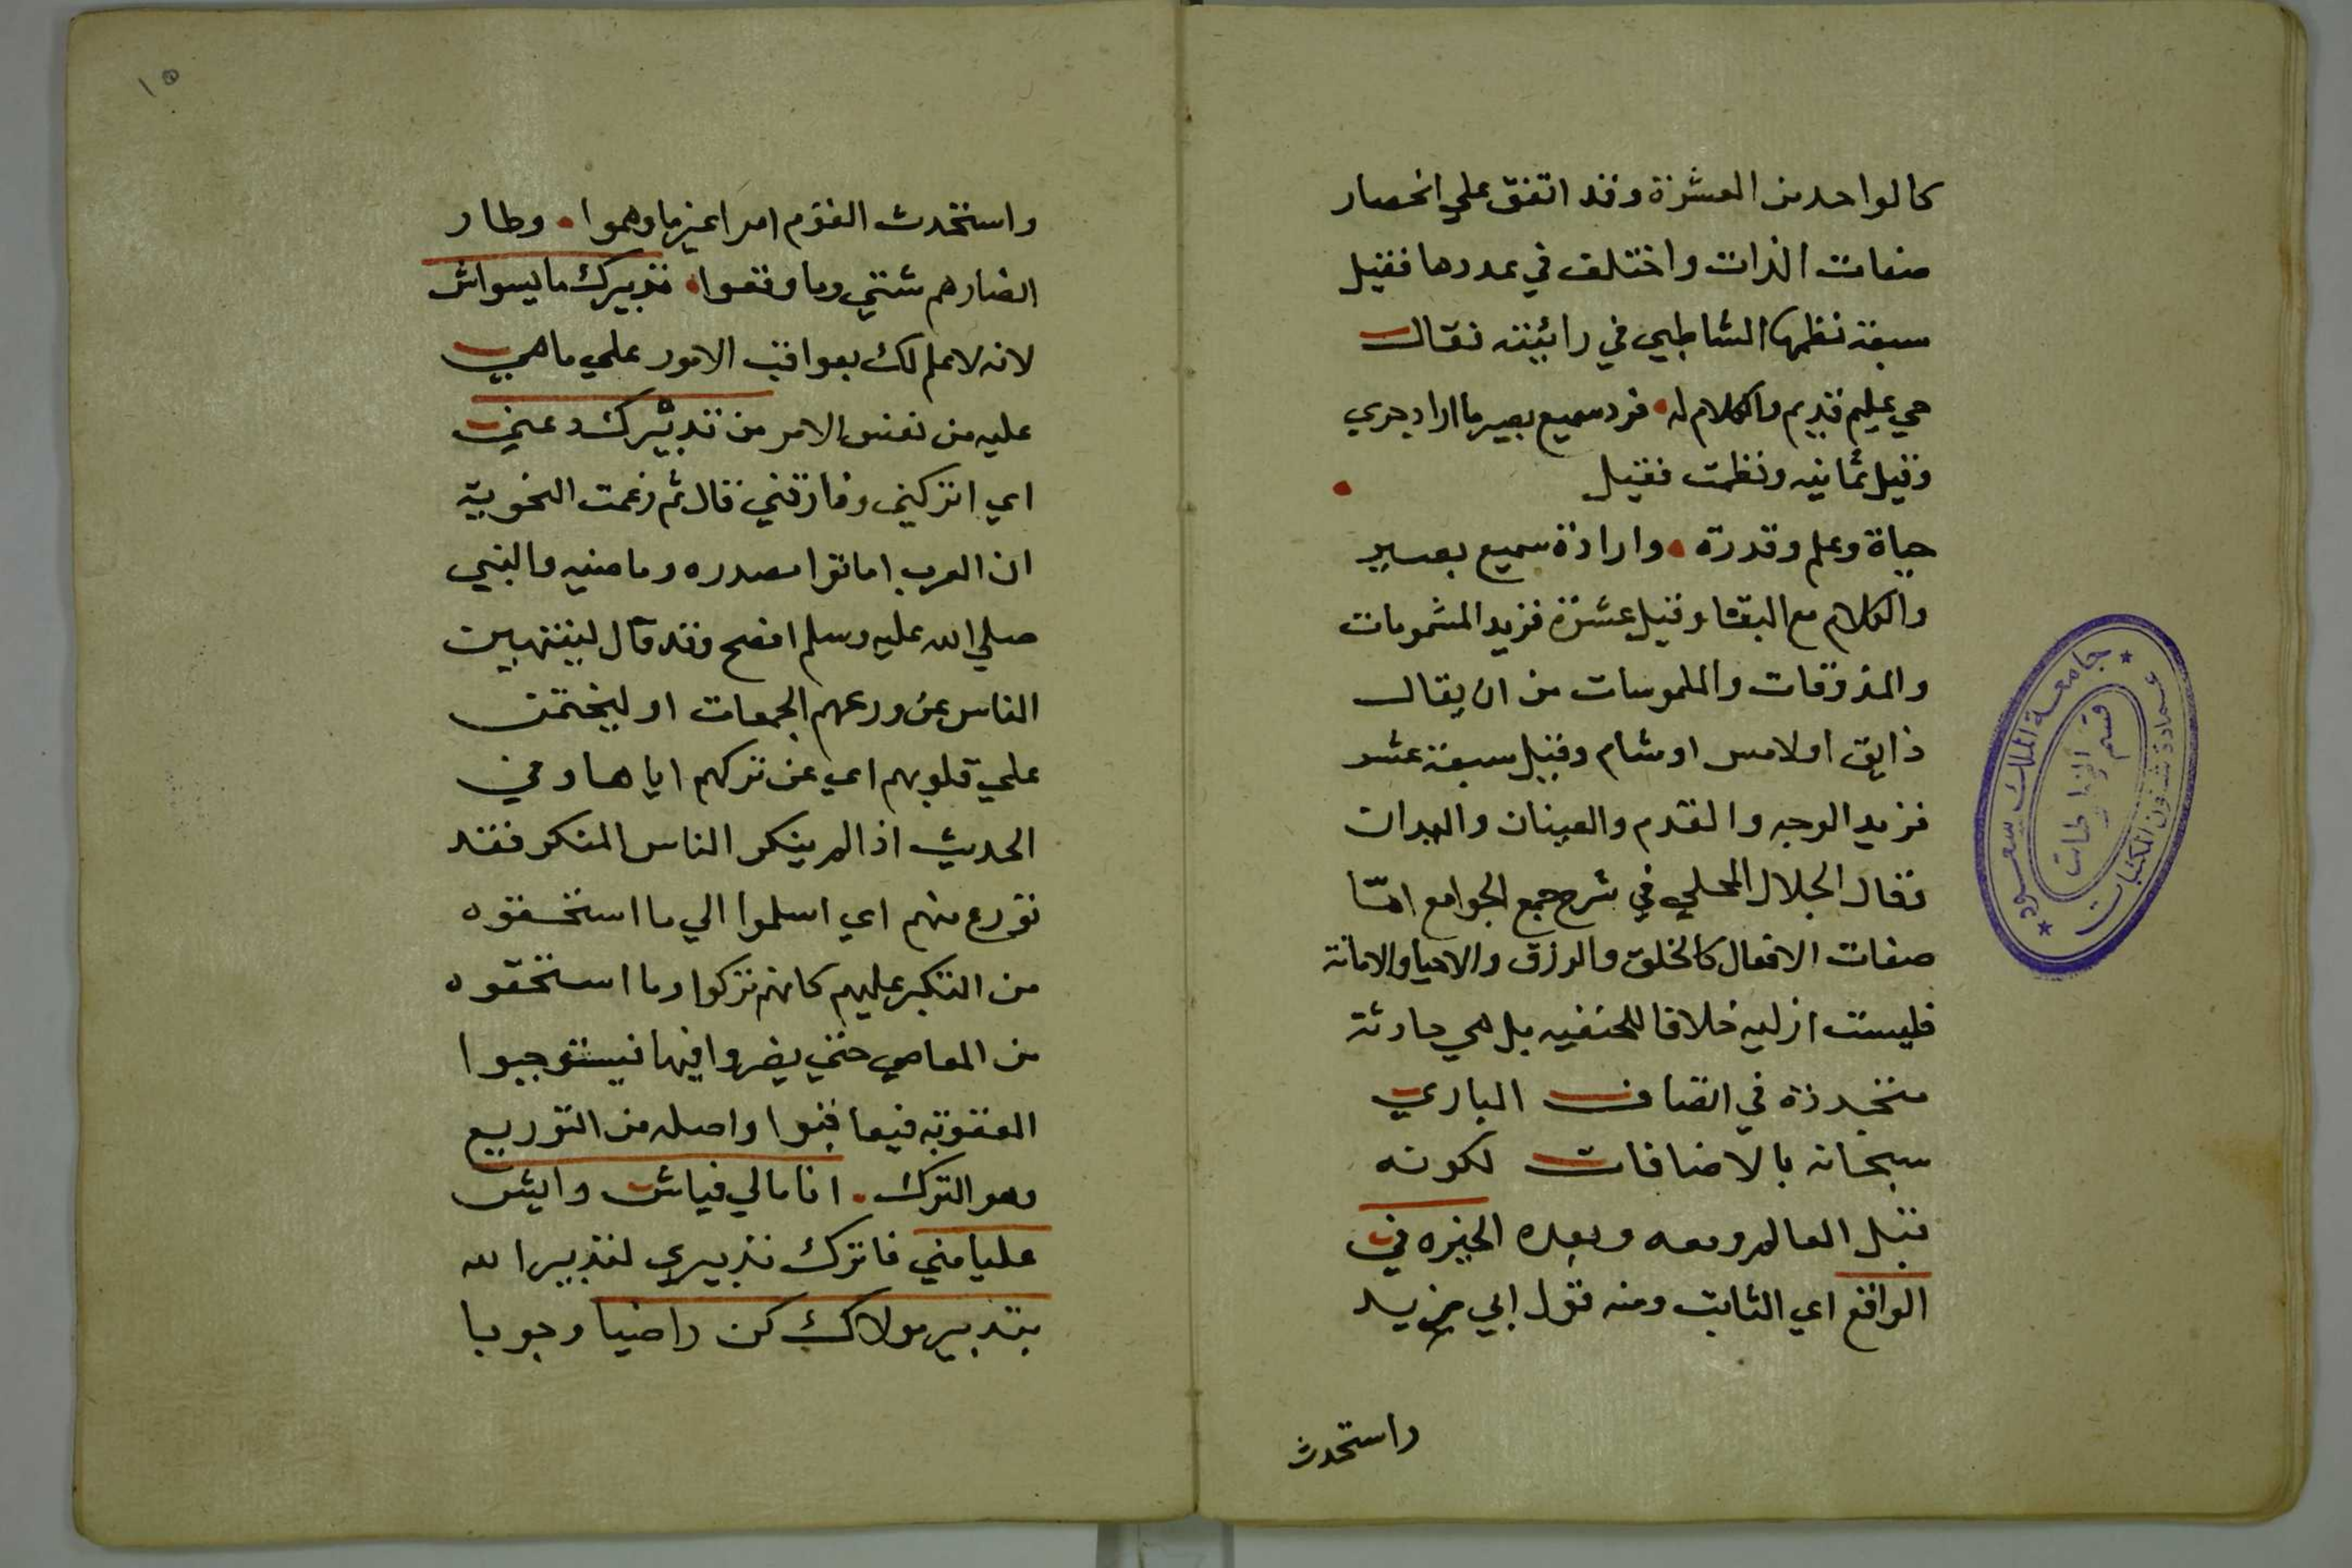 كالواحد من العشرة وقد اتفق علي انحصار
صفات الذات واختلف في عددها فقيل
سبعة نظمها الشاطبي في رائيته فقال
حي عليم قدير والكلام له فرد سميع بصير ما اراد جري
وقيل ثمانيه ونظمت فقيل
حياة وعلم وقدرة وارادة سميع بصير
والكلام مع البقا وقيل عشرة فزيد المشمومات
والمذوقات والملموسات من ان يقال
ذايق او لامس او شام وقيل سبعة عشر
فزيد الوجه والقدم والعينان واليدان
وقال الجلال المحلي في شرح جمع الجوامع امّا
صفات الافعال كالخلق والرزق والاحيا والاماتة
فليست ازليه خلافا للحنفيه بل هي حادثة
متجددة في اتصاف الباري
سبحانه بالاضافات لكونه
قبل العالم ومعه وبعده الخيره في
الواقع اي الثابت ومنه قول ابي مزيد
واستحدث
١٥
واستحدث القوم امرا غير ما وهموا وطار
انصارهم شتي وما وقعوا تدبيرك ما يسواش
لانه لا علم لك بعواقب الامور علي ما هي
عليه من نفس الامر من تدبيرك دعني
اي اتركيني وفارقني قال ثم زعمت النحوية
ان العرب اماتوا مصدره وماضيه والنبي
صلي الله عليه وسلم افصح وقد قال لينتهين
الناس عن ودعهم الجمعات او ليختمن
علي قلوبهم اي عن تركهم اياها وفي
الحديث اذا لم ينكر الناس المنكر فقد
تودع منهم اي اسلموا الي ما استحقوه
من النكير عليهم كانهم تركوا وما استحقوه
من المعاصي حتي يفروا فيها فيستوجبوا
العقوبه فيعاقبوا واصله من التوديع
وهو الترك انا مالي فياش وايش
عليا مني فاترك تدبيري لتدبير الله
بتدبير مولاك كن راضيا وجوبا
جامعة الملك سعود
عمادة شؤون المكتبات
قسم المخطوطات